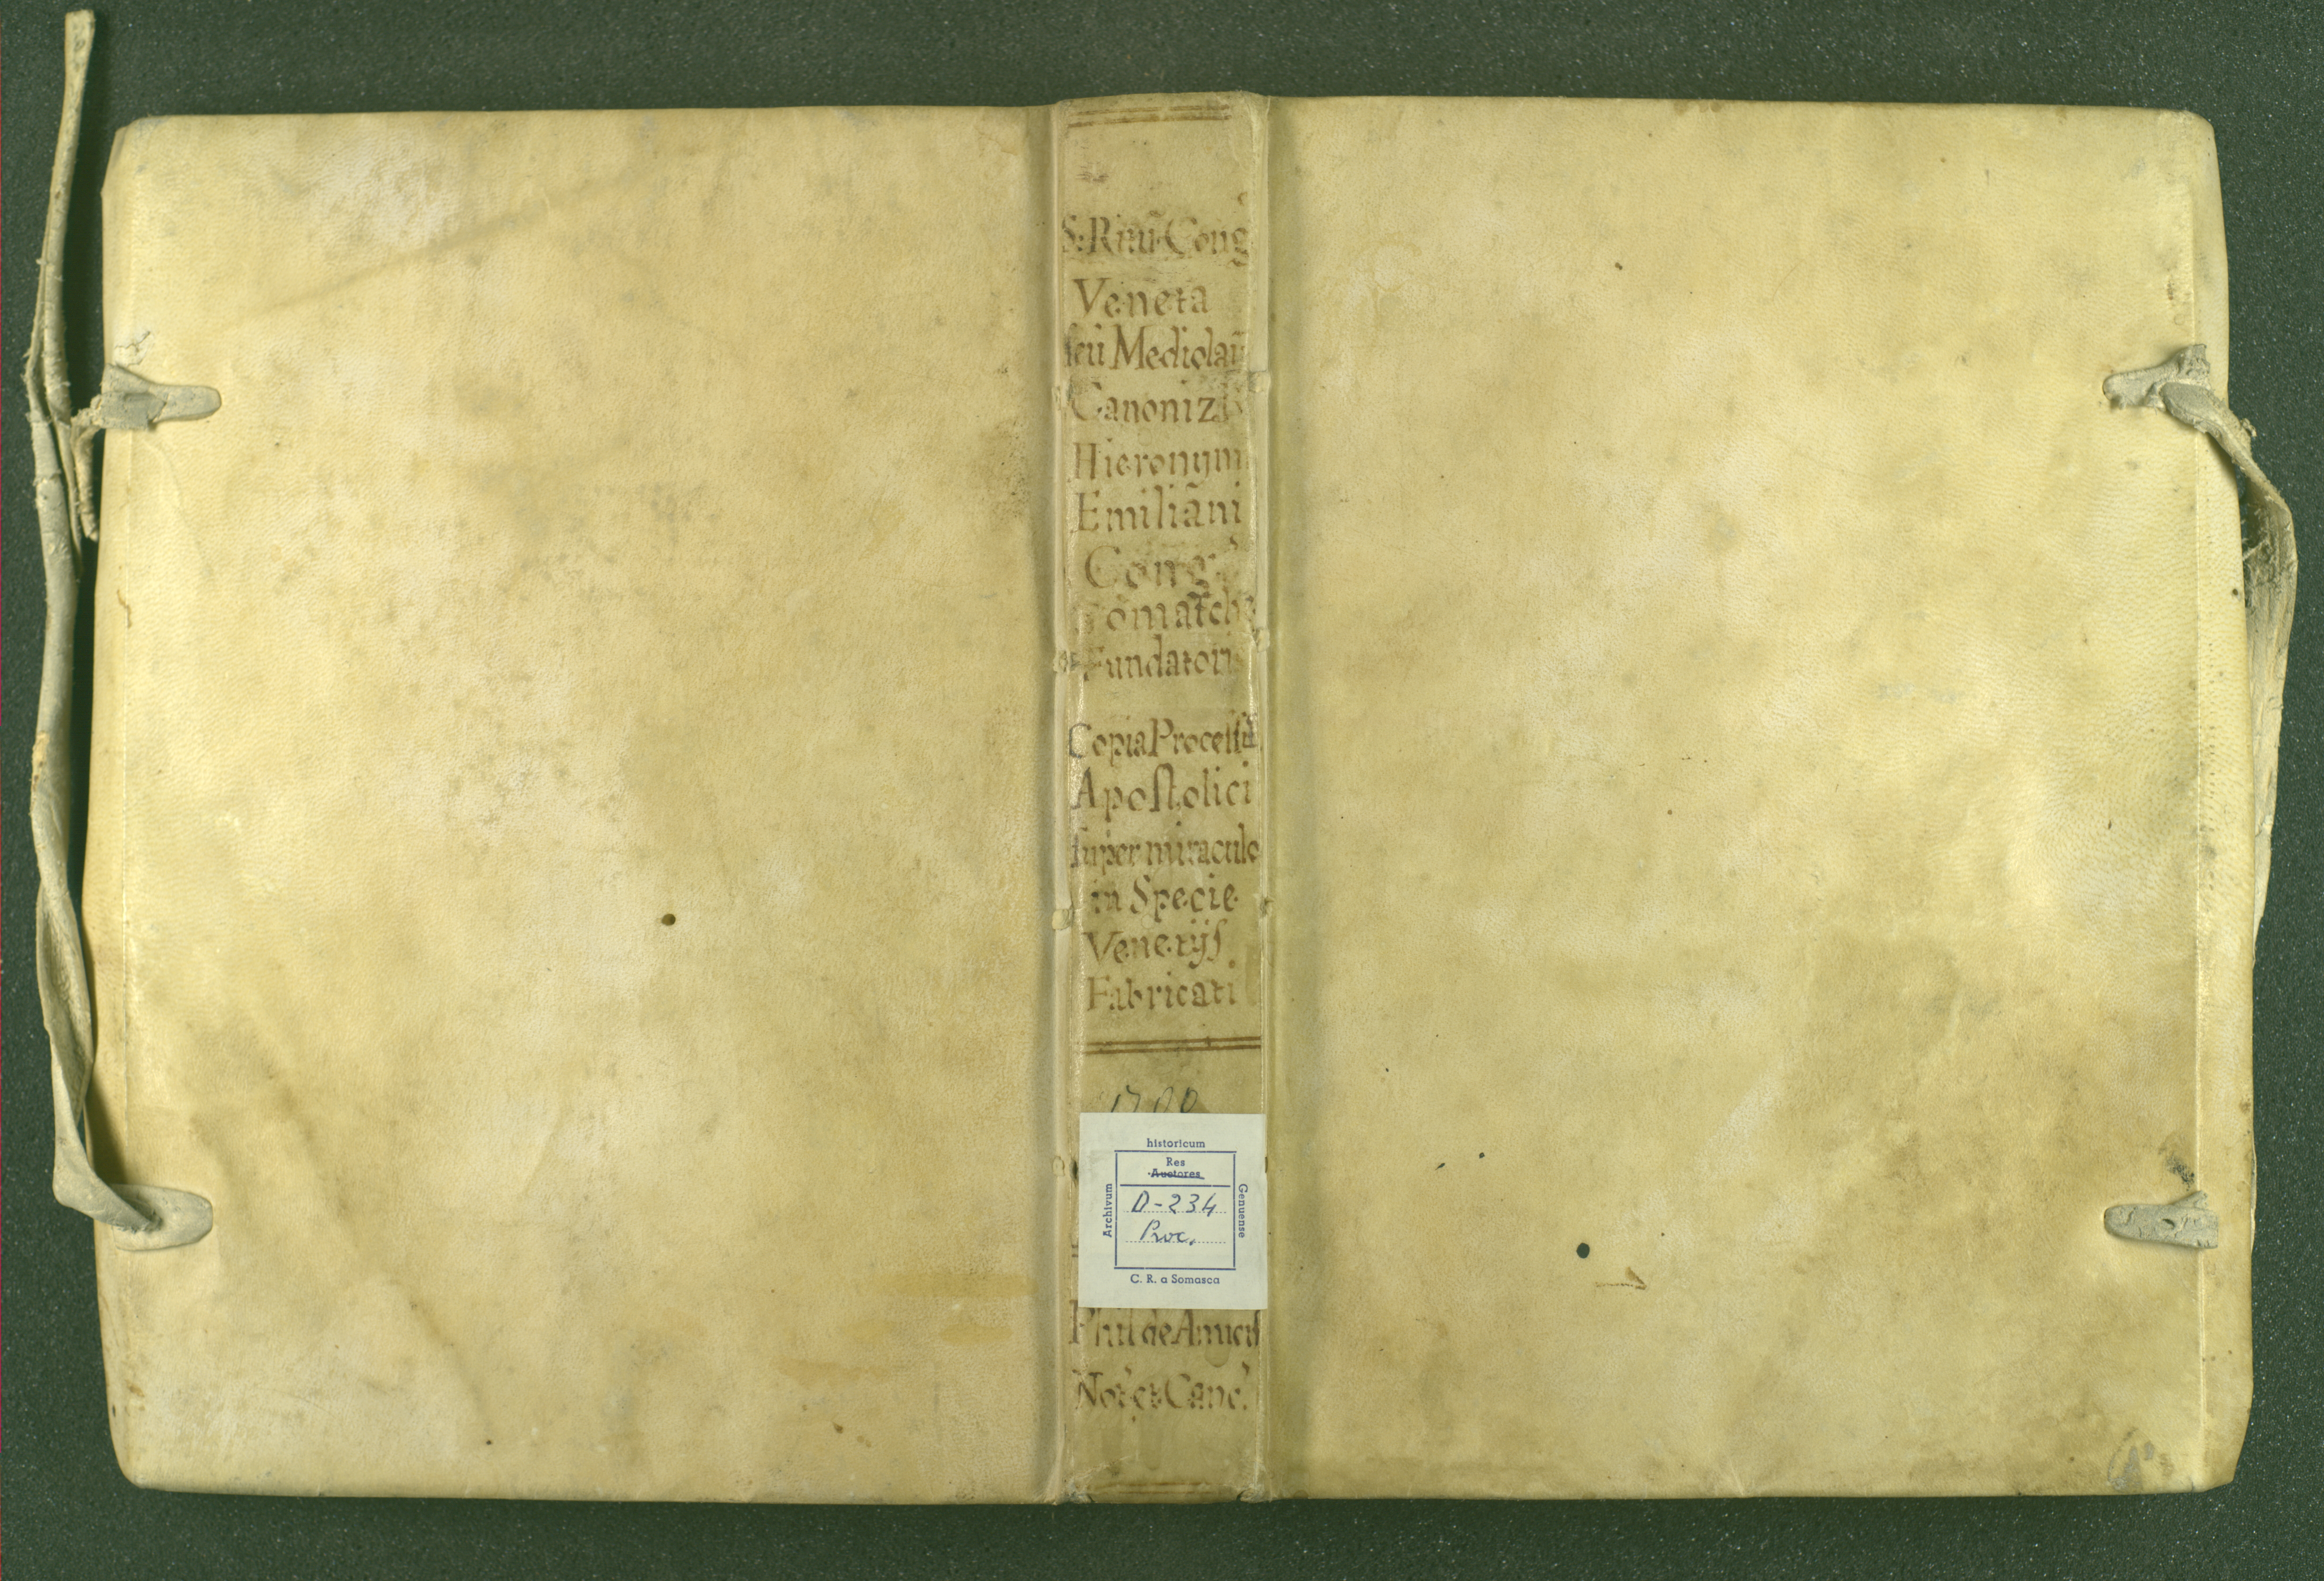 S: Ritũ Cong
Veneta
seù Mediolañ
Canoniz
Hieronymi
Emiliani
Cong
Somasche
Fundatoris
Copia Processũs
Apostolici
super miraculo
in Specie
Venetijs
Fabricati
1700
historicum
Archivum
Res
Auctores
D-234
Proc.
Genuense
C. R. a Somasca
Phil de Amicis
Not et Canc.